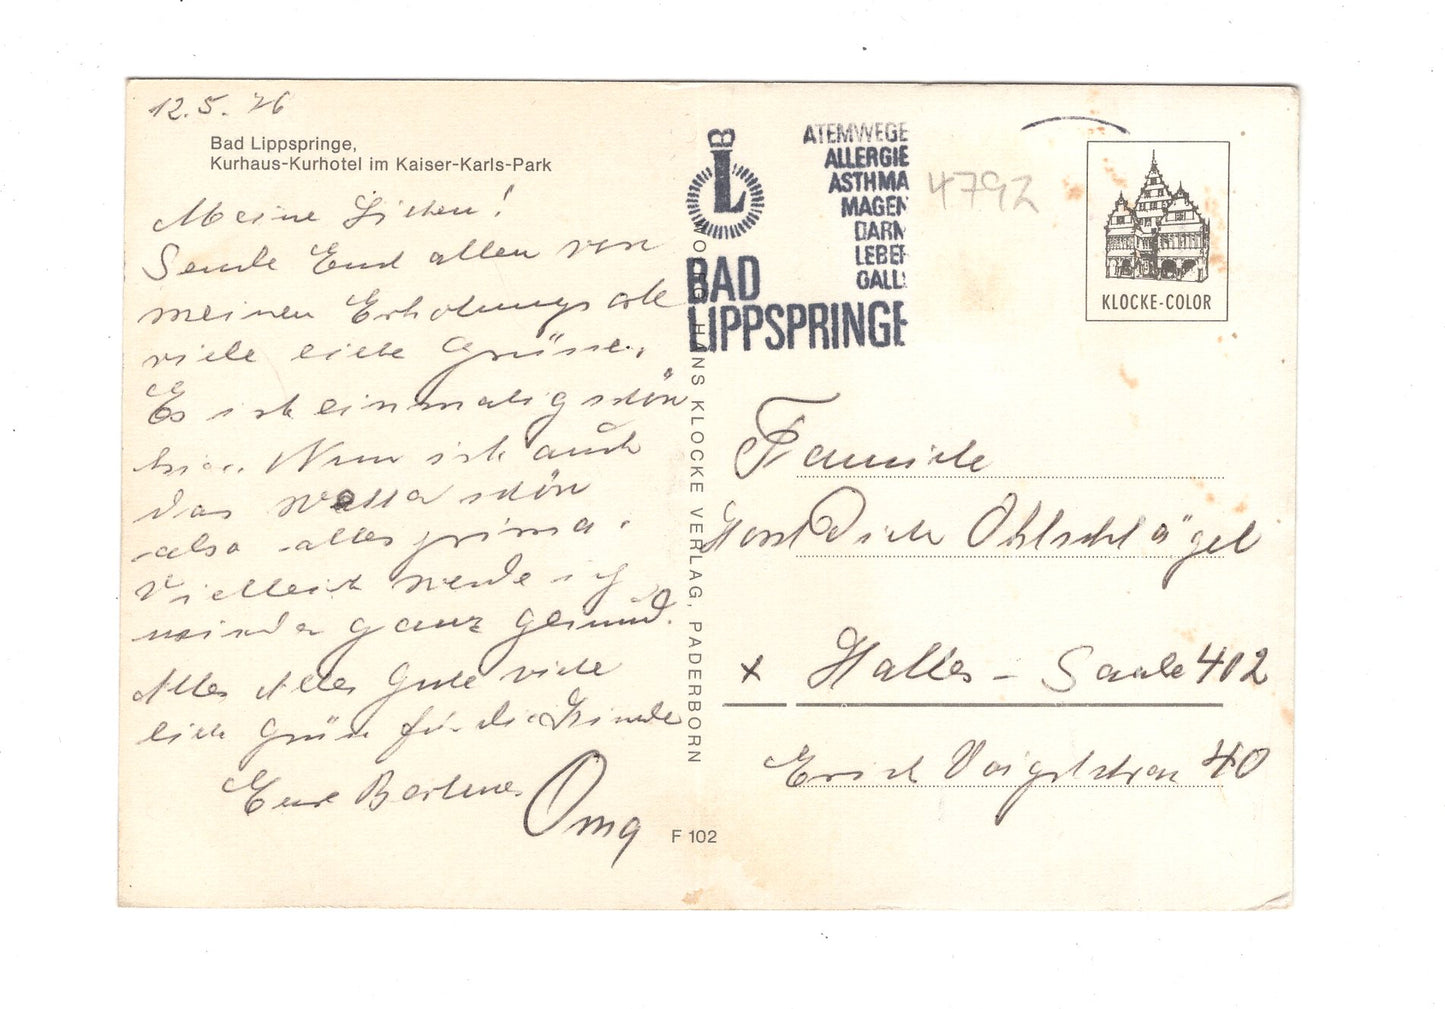 12.5.76
Bad Lippspringe,
Kurhaus-Kurhotel im Kaiser-Karls-Park
Meine Lieben!
Sende Euch allen von
meinen Erholungsorte
viele liebe Grüsse.
Es ist einmalig schön
hier. Nun ist auch
das Wetter schön
also alles prima.
Vielleicht werde ich
wieder ganz gesund.
Alles Alles Gute viele
liebe Grüsse für die Kinder
Eure Oma
L
B
ATEMWEGE
ALLERGIE
ASTHMA
MAGEN
DARM
LEBER
GALLE
BAD
LIPPSPRINGE
4792
KLOCKE-COLOR
HANS KLOCKE VERLAG, PADERBORN
Familie
Horst Ohlschlägel
x Halle - Saale 402
Erich 40
F 102